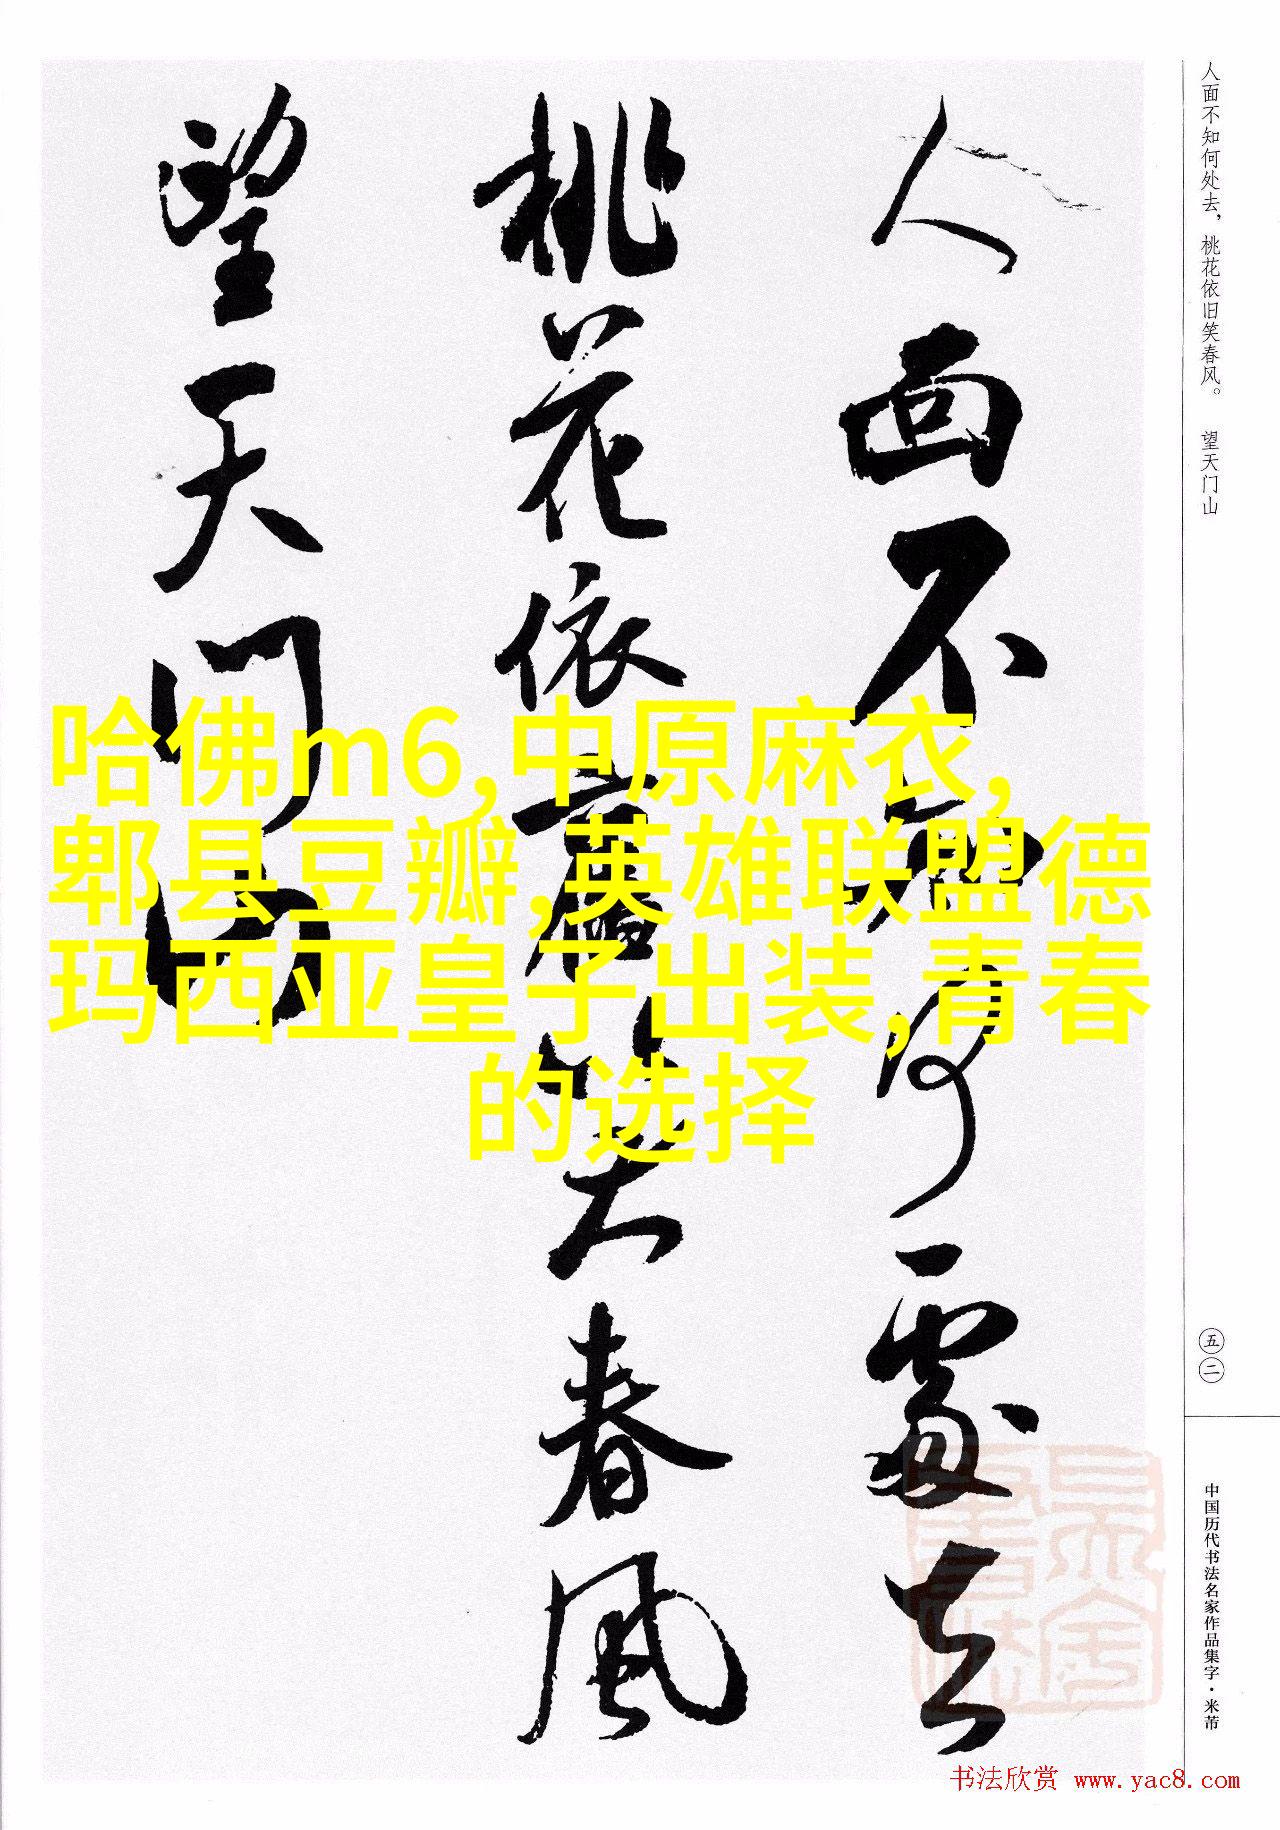 人面不知何处去，桃花依旧笑春风。 望天门山
人面不知何處去
桃花依舊笑春風
望天门山
哈佛m6,中原麻衣,
郫县豆瓣,英雄联盟德
玛西亚皇子出装,青春
的选择
五二
中国历代书法名家作品集字·米芾
书法欣赏 www.yac8.com